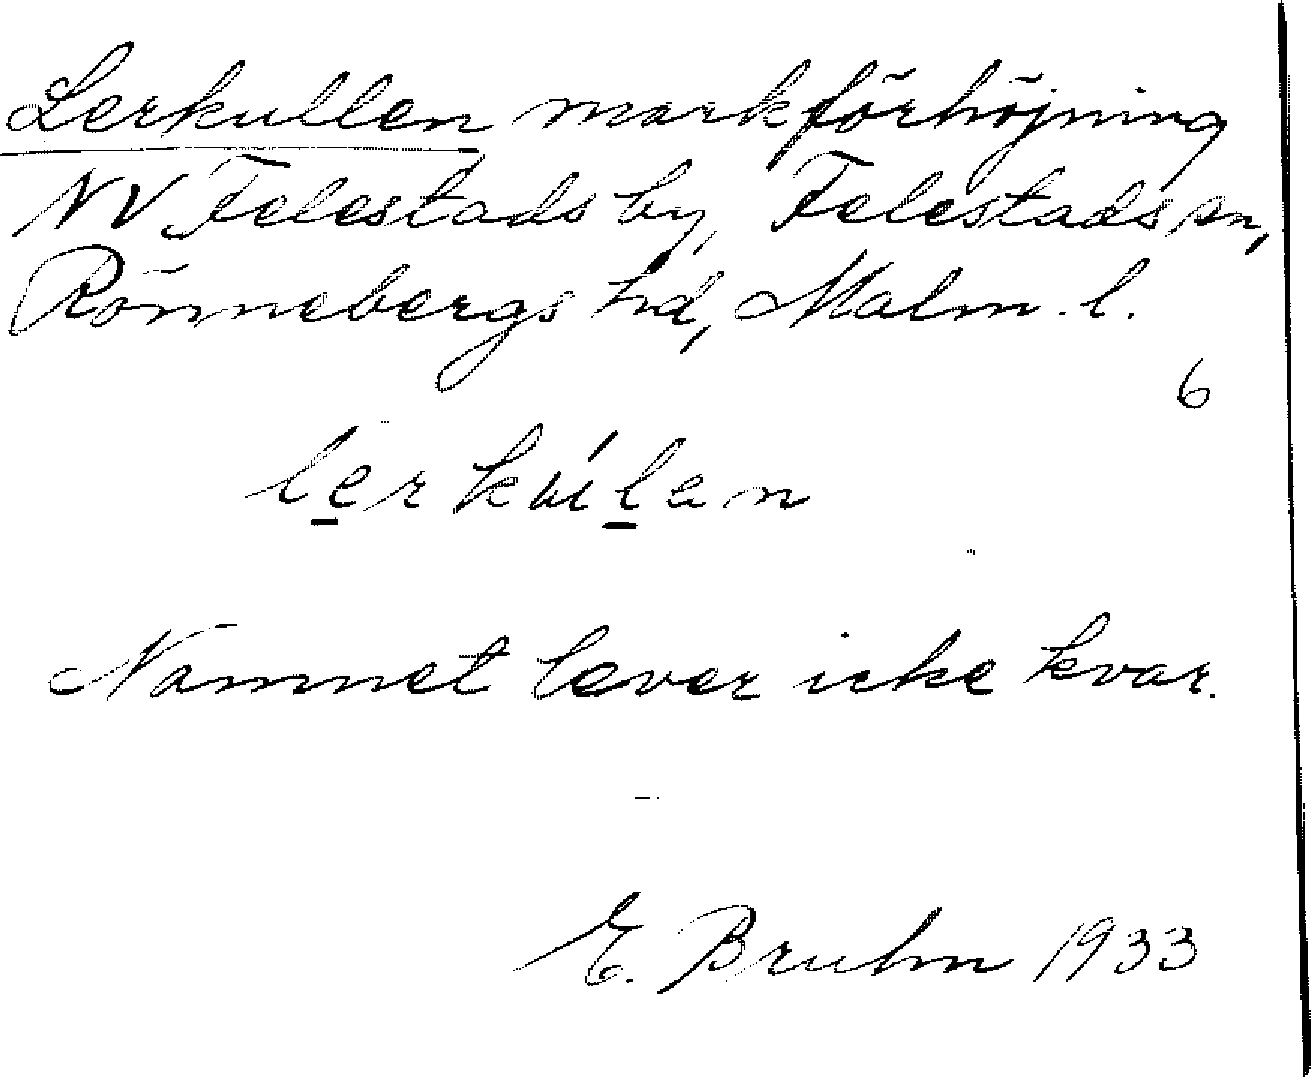 Lerkullen markförhöjning
NV Felestads by, Felestads sn,
Rönnebergs hd, Malm. l.
6
lerkúlen
Namnet lever icke kvar.
E. Bruhn 1933